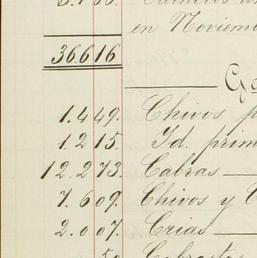 en Noviem
36.616
1.449. Chivos p
1.215. Id. prim
12.273 Cabras
7.609. Chivos y
2.007. Crias